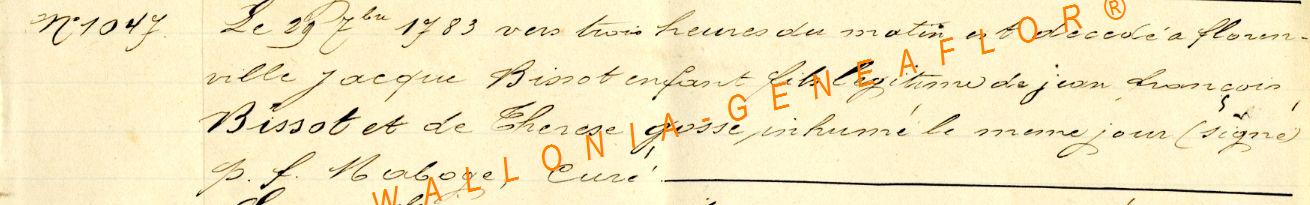 N° 1047. Le 29 7bre 1783 vers trois heures du matin est décédé a floren-
ville Jacque Bissot enfant fils légitime de jean françois
Bissot et de Therese gosse, inhumé le meme jour (signé)
p. f. Maboge, Curé.
WALLONIA-GENEAFLOR®